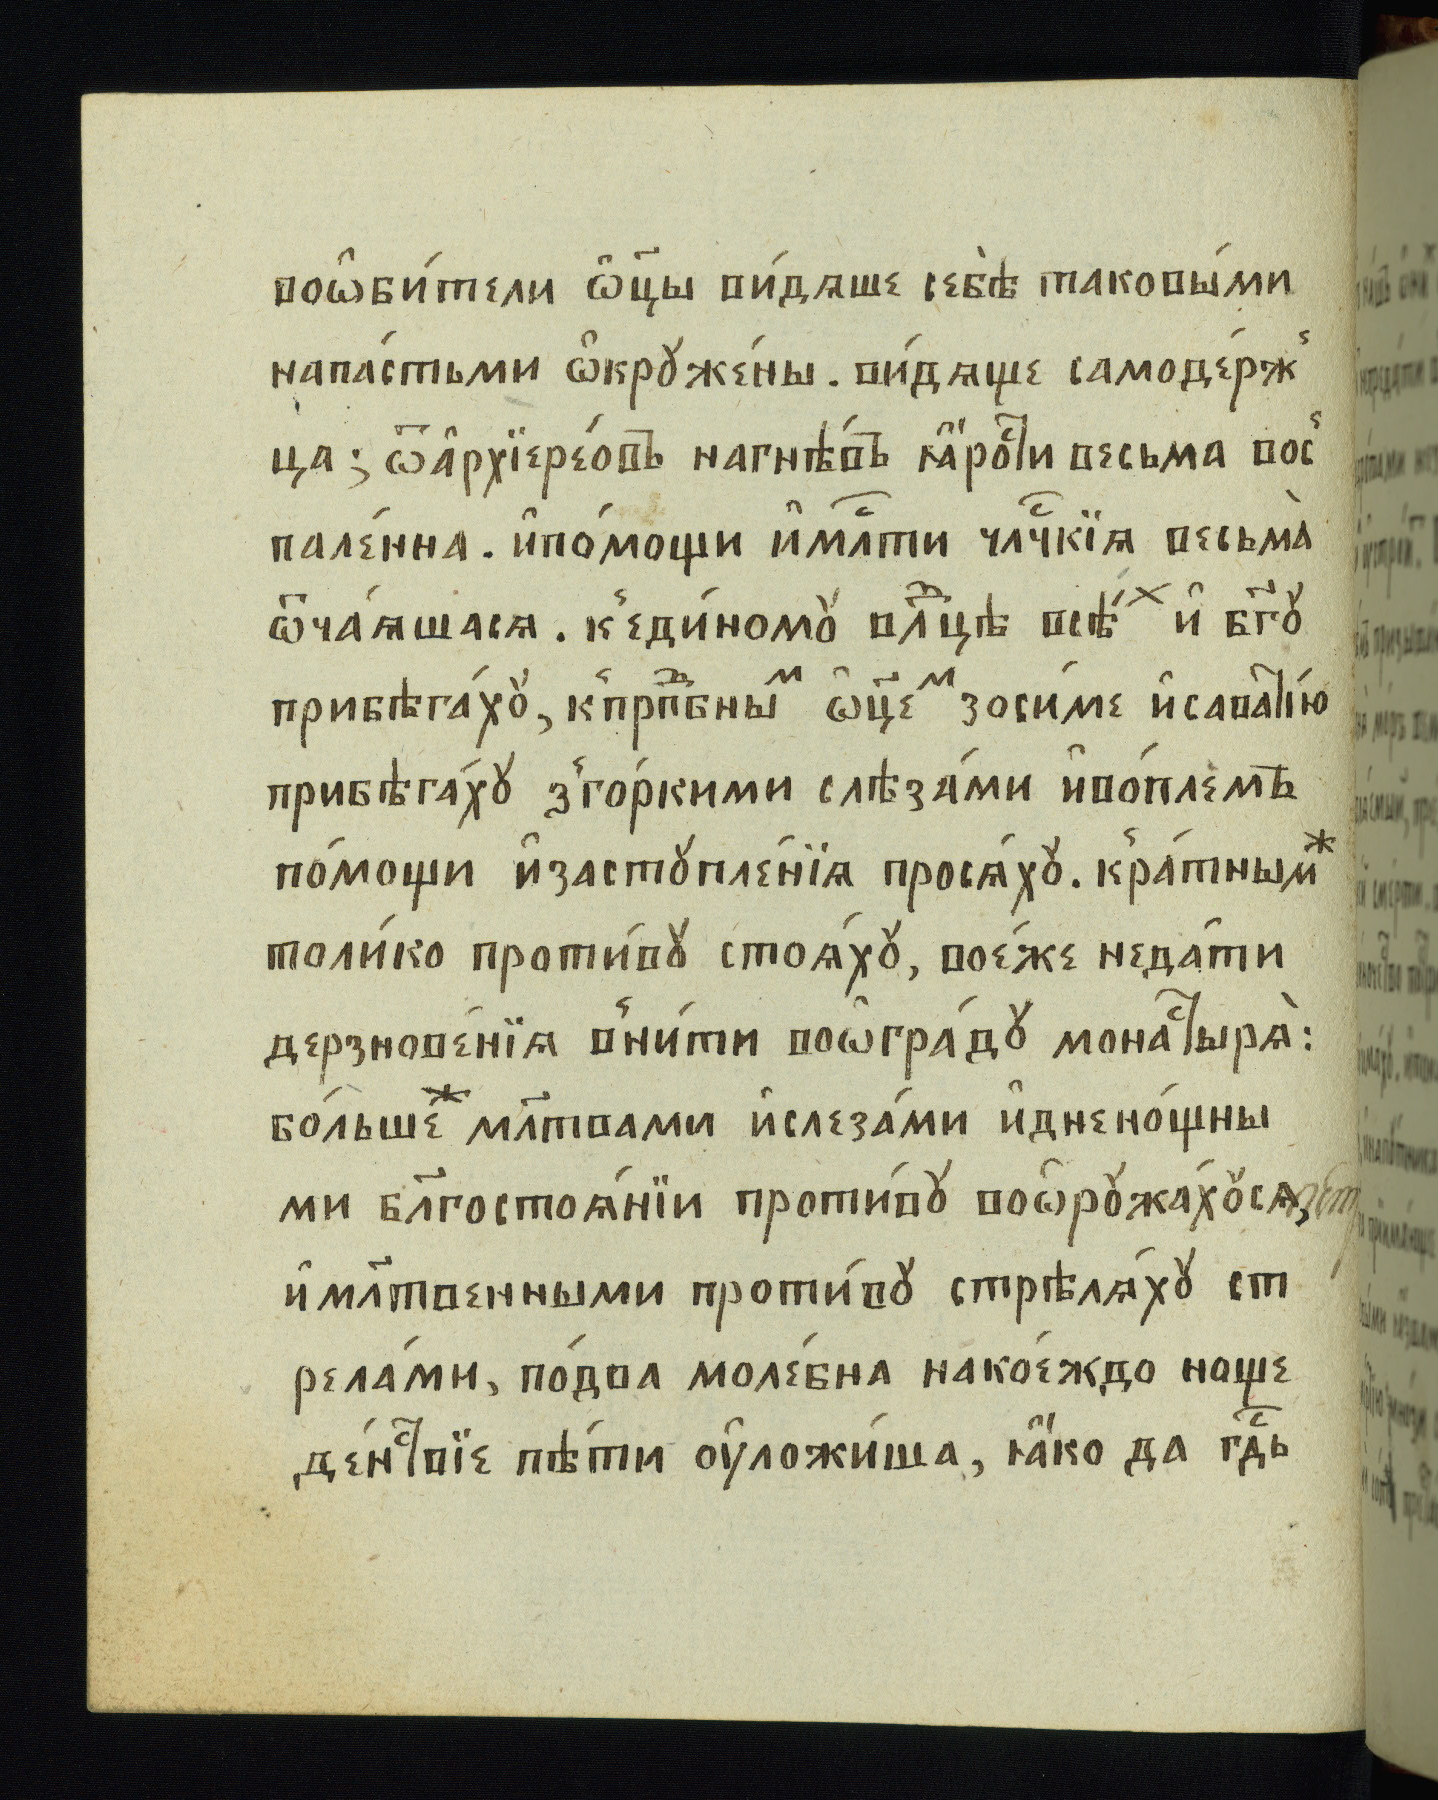 воѡ҆би́тели ѡ҆ц҃ы ви́дѧше себѣ̀ таковы́ми
напа́стьми ѡ҆крꙋже́ны. ви́дѧще самоде́рж̾
ца; ѿа҆рхїере́ѡвъ нагнѣ́въ ꙗ҆́рѡⷭ҇ти весьма вос̾
пале́нна. и҆по́мощи и҆млⷭ҇ти члⷱ҇кїѧ весьма̀
ѿча́ѧшасѧ. к̾еди́номꙋ влⷣцѣ всѣ́ⷯ и҆ бг҃ꙋ
прибѣга́хꙋ, к̾прпⷣбныⷨ ѡ҆ц҃еⷨ зоси́ме и҆саваⷮі́ю
прибѣга́хꙋ з̾го́ркими слѣза́ми и҆во́племъ
по́мощи и҆застꙋпле́нїѧ просѧ́хꙋ. к̾ра́тныиⷤ
толи́ко проти́вꙋ стоѧ́хꙋ, вое́же неда́ти
дерзнове́нїѧ в̾ни́ти воѡ҆гра́дꙋ монаⷭ҇тырѧ̀:
бо́льшеⷤ мл҃твами и҆слеза́ми и҆днено́щны
ми бл҃гостоѧ́нїи проти́вꙋ воѡ҆рꙋжа́хꙋсѧ,
и҆мл҃твенными проти́вꙋ стрѣлѧ́хꙋ ст
рела́ми, по́два моле́бна накое́ждо нощє
де́нⷭ҇твїе пѣ́ти оу҆ложи́ша, ꙗ҆́ко да гдⷭ҇ь